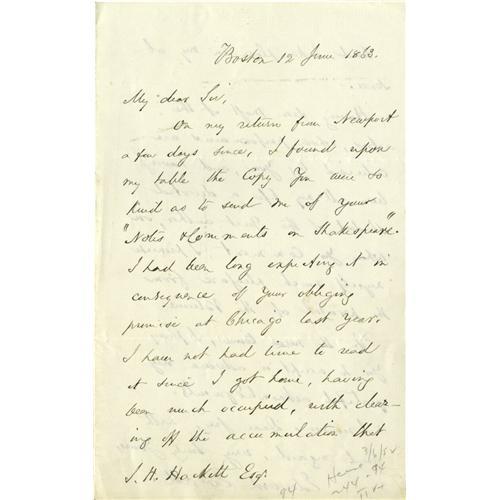 Boston 12 June 1863.
My dear Sir,
On my return from Newport
a few days since, I found upon
my table the Copy You were so
kind as to send me of your
"Notes & Comments on Shakespeare."
I had been long expecting it in
consequence of Your obliging
promise at Chicago last year.
I have not had time to read
it since I got home, having
been much occupied, with clear-
ing off the accumulation that
J. H. Hackett Esqr.
94